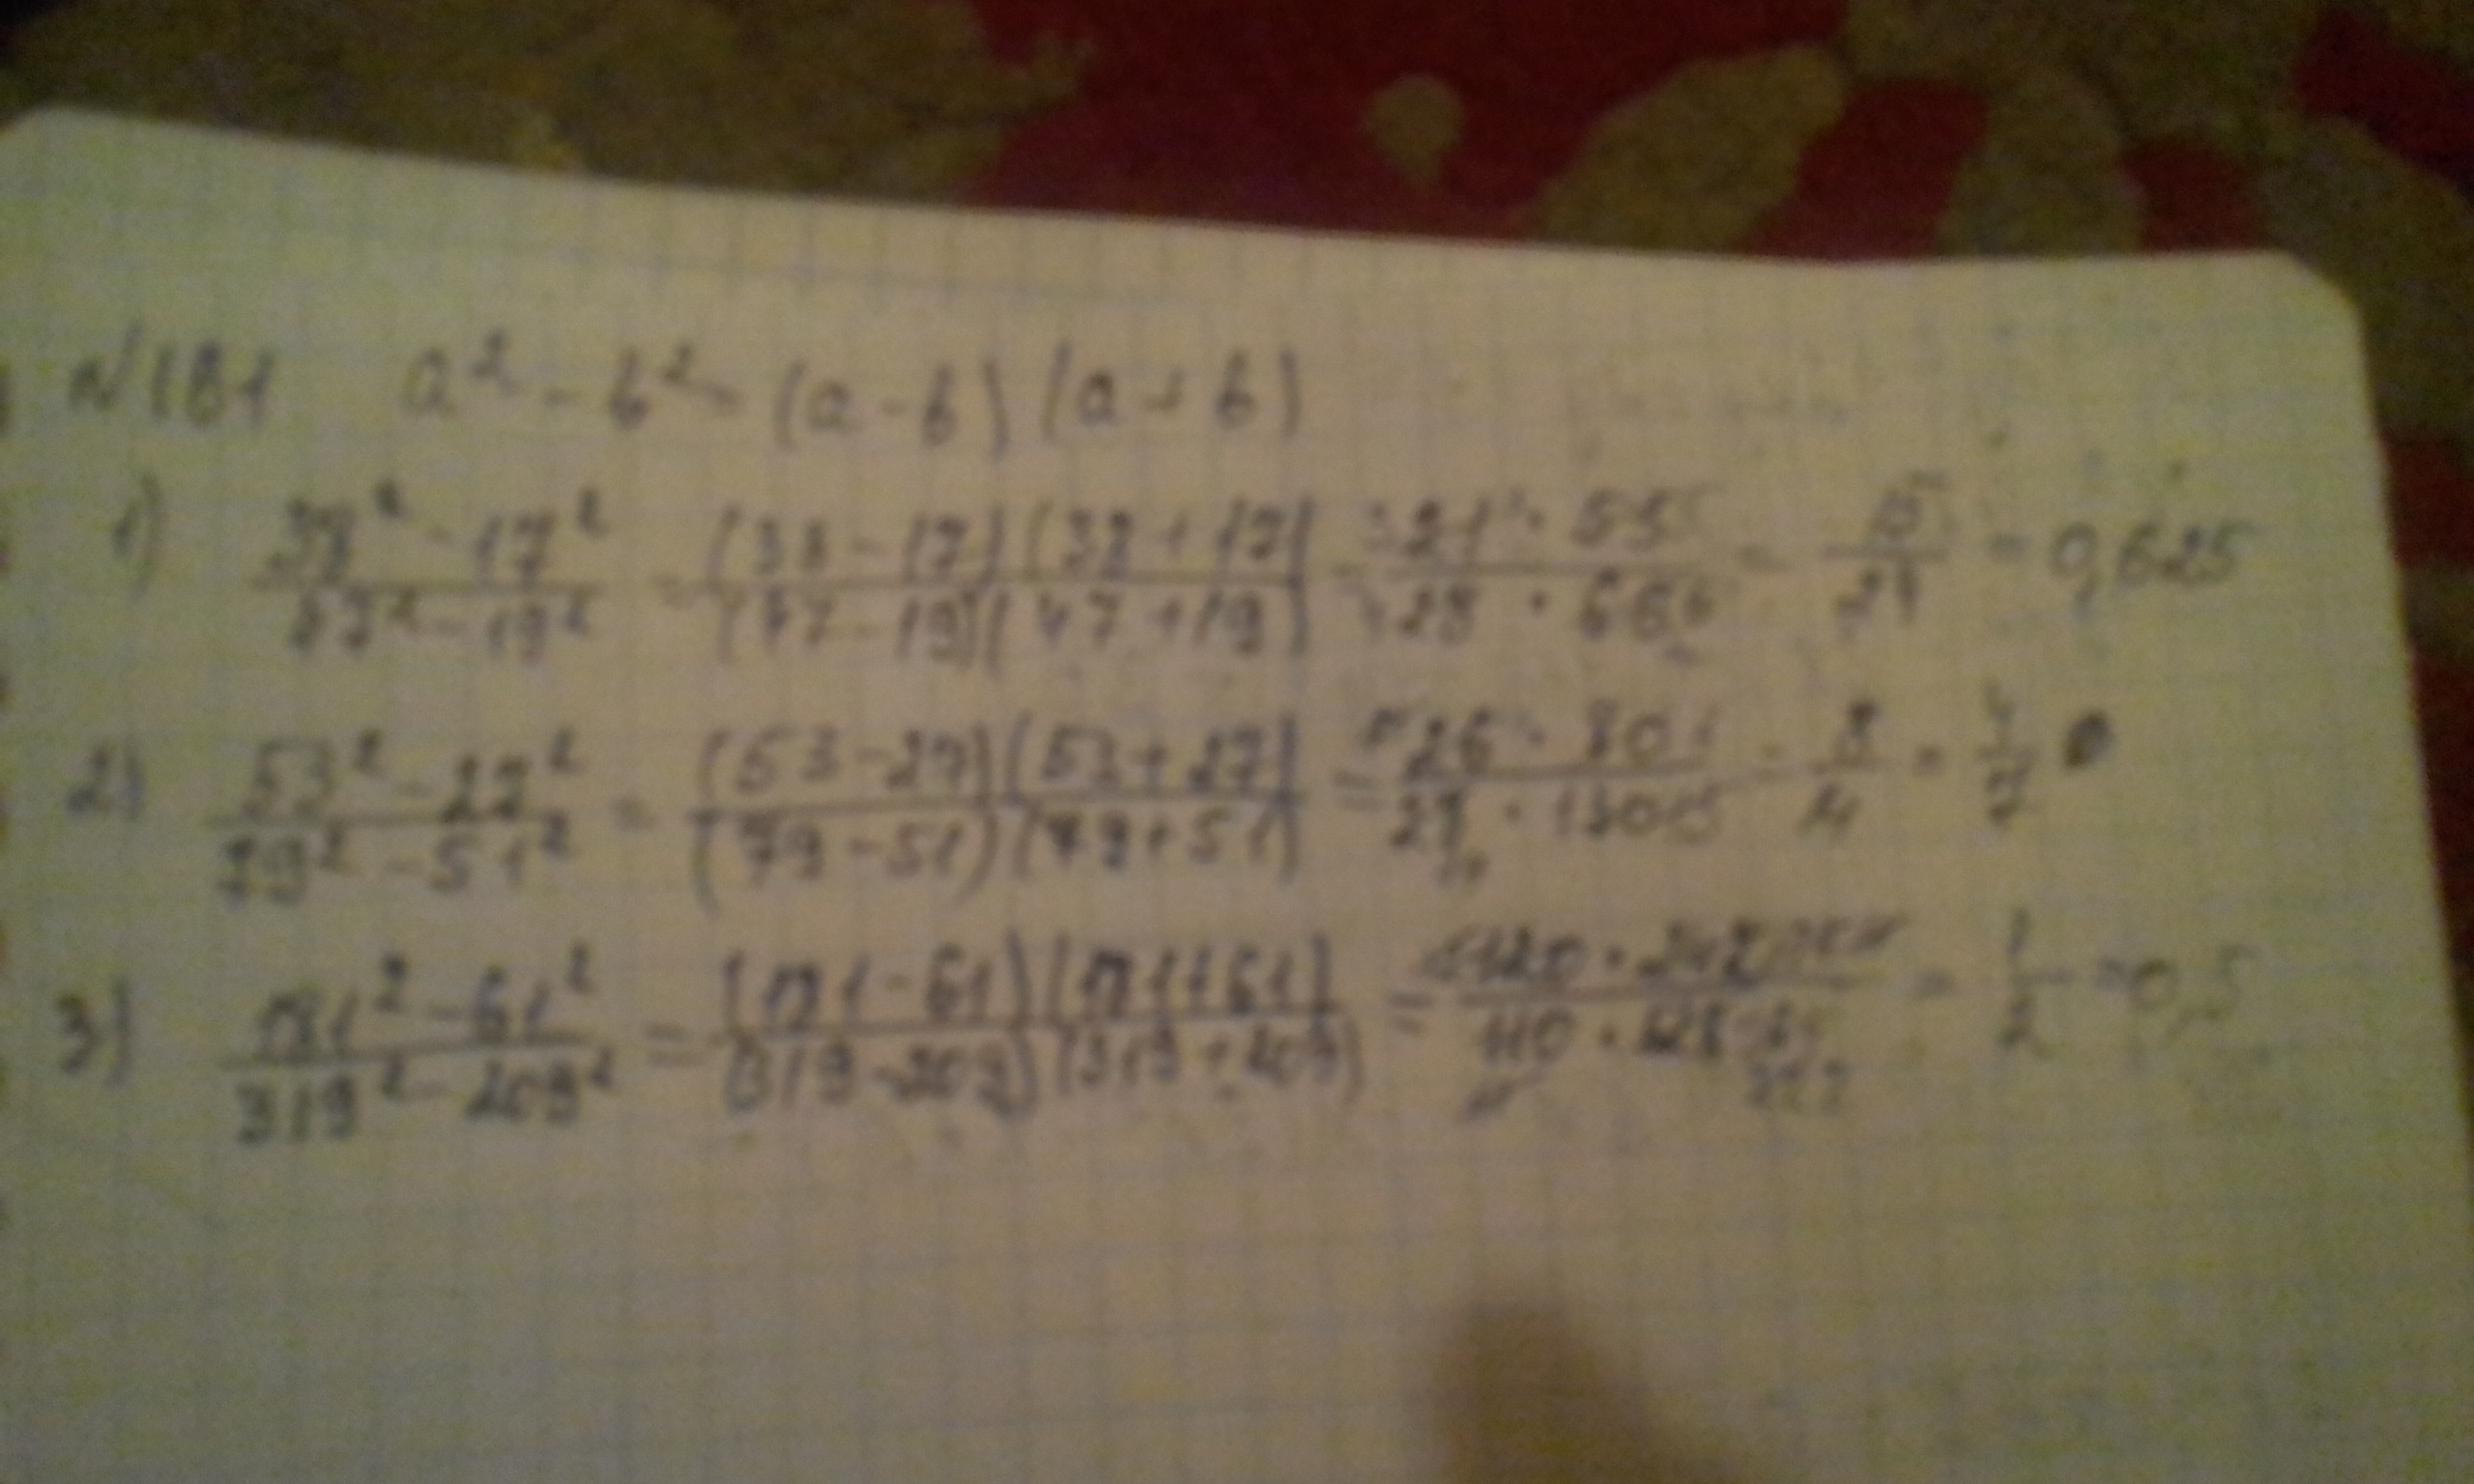 N181 a² - b² = (a - b)(a + b)
1) (38² - 17²)/(47² - 19²) = ((38 - 17)(38 + 17))/((47 - 19)(47 + 19)) = (21 · 55)/(28 · 66) = 15/24 = 0,625
2) (53² - 27²)/(79² - 51²) = ((53 - 27)(53 + 27))/((79 - 51)(79 + 51)) = (26 · 80)/(28 · 130) = 8/14 = 4/7
3) (181² - 61²)/(319² - 209²) = ((181 - 61)(181 + 61))/((319 - 209)(319 + 209)) = (120 · 242)/(110 · 528) = 1/2 = 0,5